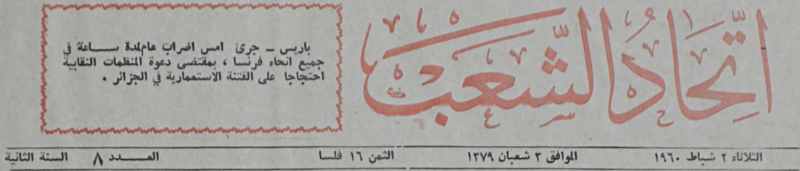 اتحاد الشعب
باريس - جرى امس اضراب عام لمدة ساعة في
جميع انحاء فرنسا ، بمقتضى دعوة المنظمات النقابية
احتجاجا على الفتنة الاستعمارية في الجزائر .
الثلاثاء ٢ شباط ١٩٦٠ الموافق ٣ شعبان ١٣٧٩ الثمن ١٦ فلسا العدد ٨ السنة الثانية